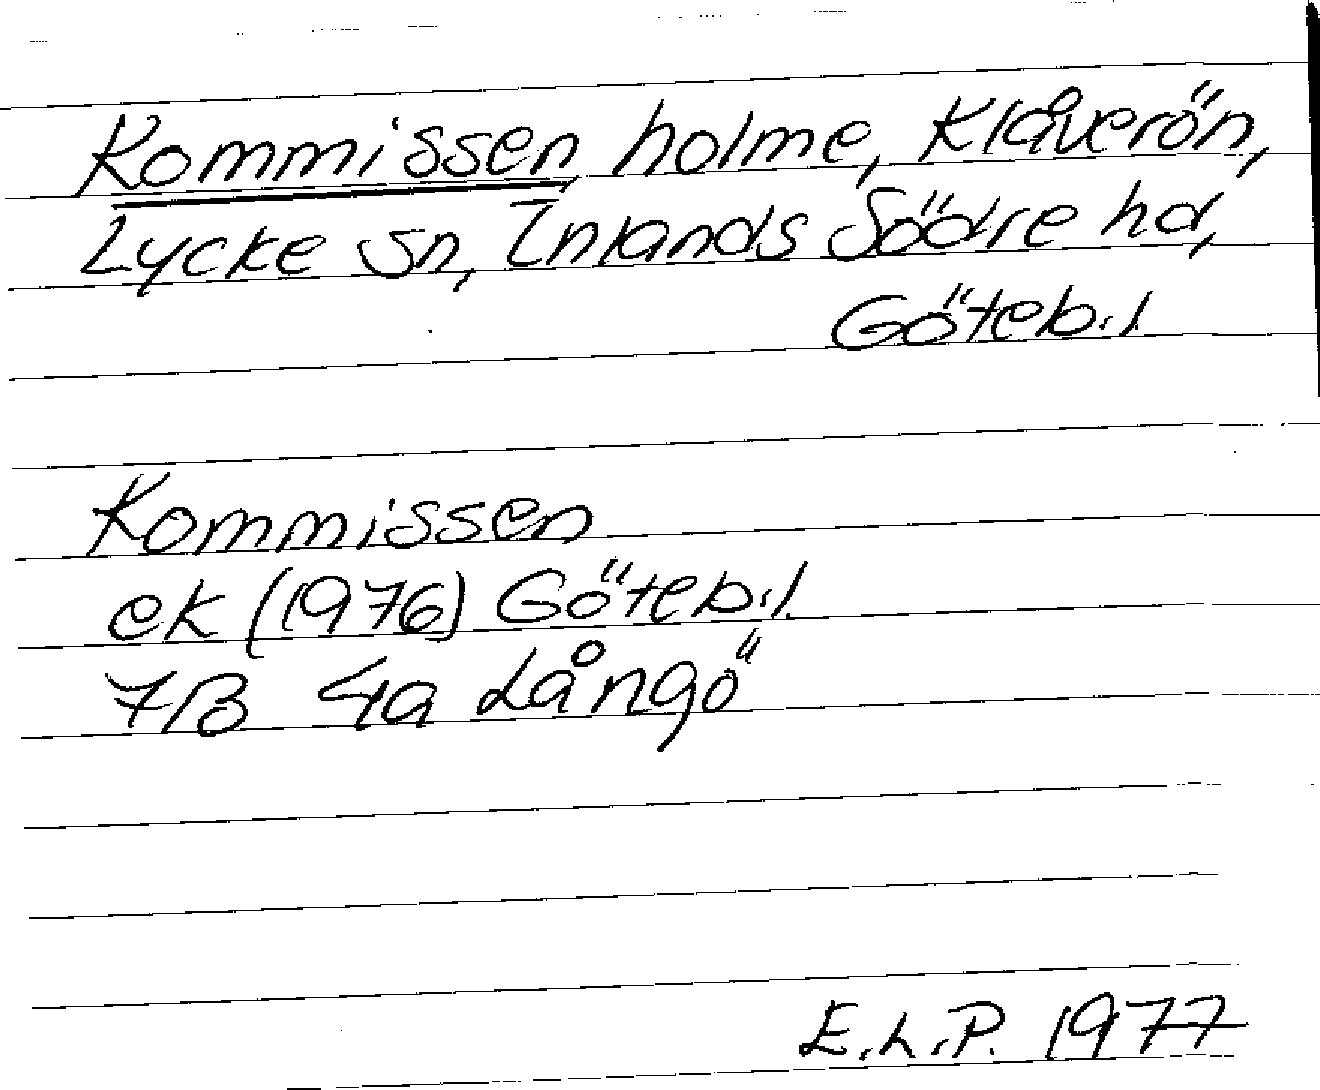 Kommissen, holme, Klåverön,
Lycke sn, Inlands Södre hd,
Göteb.l
Kommissen
ek (1976) Göteb.l.
7B 4a Långö
E.L.P. 1977